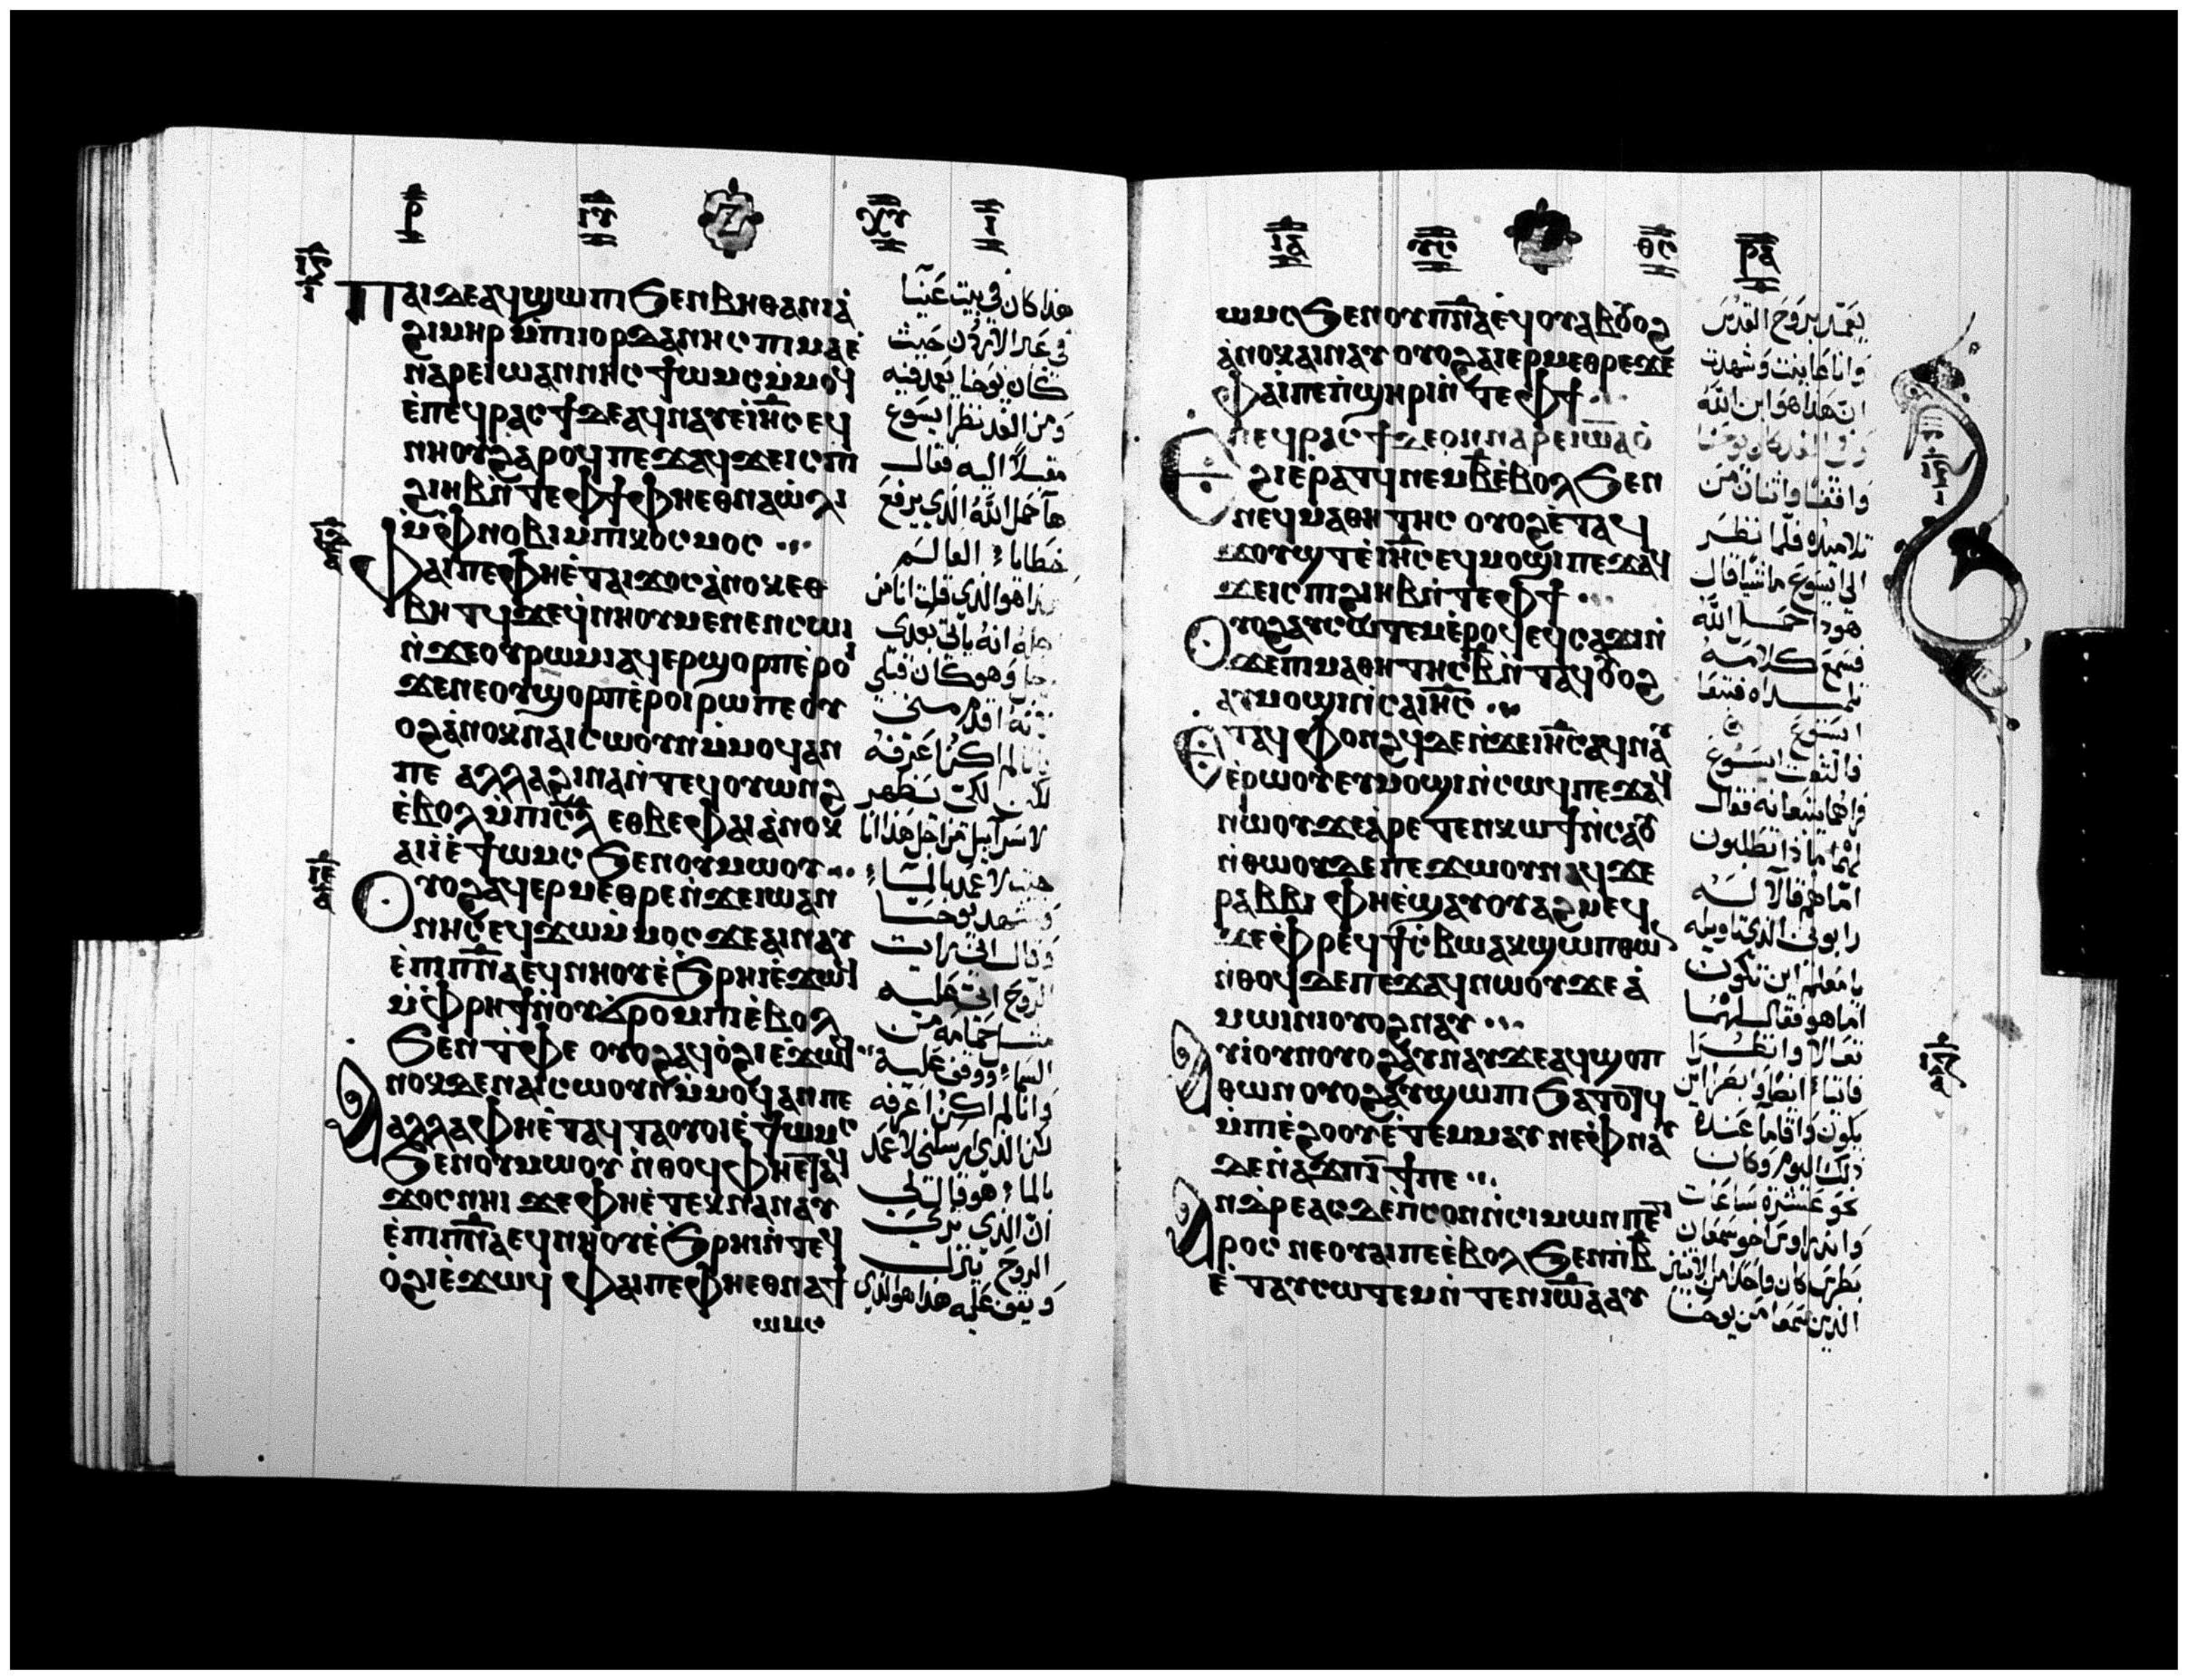 ⲣ̅ ⲓⲅ̅ ⲓ̅
ⲓⲅ̅
ⲡⲁⲓⲇⲉⲁϥϣⲱⲡⲓ ϧⲉⲛⲃⲏⲑⲁⲛⲓⲁ̀
ϩⲓⲙⲏⲣ ⲙ̀ⲡⲓⲓⲟⲣⲇⲁⲛⲏⲥ ⲡⲓⲙⲁⲉ̀
ⲛⲁⲣⲉⲓⲱⲁⲛⲛⲏⲥ ϯⲱⲙⲥ ⲙ̀ⲙⲟϥ
ⲉ̀ⲡⲉϥⲣⲁⲥϯ ⲇⲉ ⲁϥⲛⲁⲩ ⲉ̀ⲓⲏ̅ⲥ ⲉϥ
ⲛⲏⲟⲩ ϩⲁⲣⲟϥ ⲡⲉϫⲁϥ ϫⲉⲓⲥ ⲡⲓ
ϩⲓⲏⲃ ⲛ̀ⲧⲉⲫϯ ⲫⲏⲉⲑⲛⲁⲱ̀ⲗⲓ
ⲙ̀ⲫⲛⲟⲃⲓ ⲙ̀ⲡⲓⲕⲟⲥⲙⲟⲥ
ⲫⲁⲓⲡⲉ ⲫⲏⲉ̀ⲧⲁⲓϫⲟⲥ ⲁ̀ⲛⲟⲕ ⲉⲑ
ⲃⲏⲧϥ ϫⲉϥ̀ⲛⲏⲟⲩ ⲙⲉⲛⲉⲛⲥⲱⲓ
ⲛ̀ϫⲉⲟⲩⲣⲱⲙⲓ ⲁϥⲉⲣϣⲟⲣⲡ ⲉ̀ⲣⲟⲓ
ϫⲉⲛⲉⲟⲩϣⲟⲣⲡ ⲉ̀ⲣⲟⲓ ⲣⲱ ⲡⲉ ⲟⲩ
ⲟϩ ⲁ̀ⲛⲟⲕ ⲛⲁⲓⲥⲱⲟⲩⲛ ⲙ̀ⲙⲟϥ ⲁⲛ
ⲡⲉ ⲁⲗⲗⲁ ϩⲓⲛⲁ ⲛ̀ⲧⲉϥⲟⲩⲱⲛϩ
ⲉ̀ⲃⲟⲗ ⲙ̀ⲡⲓⲥ̅ⲗ ⲉⲑⲃⲉⲫⲁⲓ ⲁ̀ⲛⲟⲕ
ⲁⲓⲓ̀ ⲉ̀ϯⲱⲙⲥ ϧⲉⲛⲟⲩⲙⲱⲟⲩ
ⲓⲉ̅
ⲟⲩⲟϩ ⲁϥⲉⲣⲙⲉⲑⲣⲉ ⲛ̀ϫⲉⲓⲱⲁⲛ
ⲛⲏⲥ ⲉϥϫⲱ ⲙ̀ⲙⲟⲥ ϫⲉⲁⲓⲛⲁⲩ
ⲉ̀ⲡⲓⲡ̅ⲛ̅ⲁ ⲉϥⲛⲏⲟⲩ ⲉ̀ϧⲣⲏⲓ ⲉ̀ϫⲱϥ
ⲙ̀ⲫⲣⲏϯ ⲛ̀ⲟⲩϭⲣⲟⲙⲡⲓ ⲉ̀ⲃⲟⲗ
ϧⲉⲛ ⲧ̀ⲫⲉ ⲟⲩⲟϩ ⲁϥⲟ̀ϩⲓ ⲉ̀ϫⲱϥ
ⲁⲛⲟⲕ ⲇⲉ ⲛⲁⲓⲥⲱⲟⲩⲛ ⲙ̀ⲙⲟϥ ⲁⲛ ⲡⲉ
ⲁⲗⲗⲁ ⲫⲏⲉ̀ⲧⲁϥⲧⲁⲟⲩⲟⲓ ⲉ̀ϯⲱⲙⲥ
ϧⲉⲛⲟⲩⲙⲱⲟⲩ ⲛ̀ⲑⲟϥ ⲫⲏⲉⲧⲁϥ
ϫⲟⲥ ⲛⲏⲓ ϫⲉⲫⲏⲉ̀ⲧⲉⲕⲛⲁⲛⲁⲩ
ⲉ̀ⲡⲓⲡ̅ⲛ̅ⲁ ⲉϥⲛⲏⲟⲩ ⲉ̀ϧⲣⲏⲓ ⲛ̀ⲧⲉϥ
ⲟ̀ϩⲓ ⲉ̀ϫⲱϥ ⲫⲁⲓⲡⲉ ⲫⲏⲉⲑⲛⲁϯ
ⲱⲙⲥ
هذا كان في بيت عنيا
في عبر الاردن حيث
كان يوحنا يعمد فيه
ومن الغد نظر ايسوع
مقبلاً اليه فقال
ها حمل الله الذي يرفع
خطايا العالم
هذا هو الذي قلت انا من
اجله انه ياتي بعدي
رجل وهو كان قبلي
لانه اقدم مني
وانا لم اكن اعرفه
لكن لكي يظهر
لاسراييل من اجل هذا انا
جيت لاعمد بالماء
وشهد يوحنا
وقال اني رايت
الروح اتى عليه
مثل حمامه من
السماء ووقف عليه
وانا لم اكن اعرفه
لكن الذي ارسلني لاعمد
بالماء هو قال لي
ان الذي ترى
الروح ينزل
ويقف عليه هذا هو الذي
ⲓⲁ̅ ⲣⲁ̅
ⲱⲙⲥ ϧⲉⲛⲟⲩⲡ̅ⲛ̅ⲁ ⲉϥⲟⲩⲁⲃ ⲟⲩⲟϩ
ⲁ̀ⲛⲟⲕ ⲁⲓⲛⲁⲩ ⲟⲩⲟϩ ⲁⲓⲉⲣⲙⲉⲑⲣⲉ ϫⲉ
ⲫⲁⲓⲡⲉ ⲡ̀ϣⲏⲣⲓ ⲛ̀ⲧⲉⲫϯ
ⲉⲡⲉϥⲣⲁⲥϯ ⲇⲉ ⲟⲛ ⲛⲁⲣⲉⲓⲱ̅ⲁ ⲟ̀
ϩⲓ ⲉ̀ⲣⲁⲧϥ ⲛⲉⲙ ⲃ̅ ⲉ̀ⲃⲟⲗ ϧⲉⲛ
ⲛⲉϥⲙⲁⲑⲏⲧⲏⲥ ⲟⲩⲟϩ ⲉ̀ⲧⲁϥ
ϫⲟⲩϣⲧ ⲉ̀ⲓⲏ̅ⲥ ⲉϥⲙⲟϣⲓ ⲡⲉϫⲁϥ
ϫⲉⲓⲥ ⲡⲓϩⲓⲏⲃ ⲛ̀ⲧⲉⲫϯ
ⲟⲩⲟϩ ⲁⲩⲥⲱⲧⲉⲙ ⲉ̀ⲣⲟϥ ⲉϥⲥⲁϫⲓ ⲛ̀
ϫⲉⲡⲓⲙⲁⲑⲏⲧⲏⲥ ⲃ̅ ⲛ̀ⲧⲁϥ ⲟⲩⲟϩ
ⲁⲩⲙⲟϣⲓ ⲛ̀ⲥⲁ ⲓⲏ̅ⲥ
ⲉⲧⲁϥⲫⲟⲛϩϥ ⲇⲉ ⲛ̀ϫⲉⲓⲏ̅ⲥ ⲁϥⲛⲁⲩ
ⲉ̀ⲣⲱⲟⲩ ⲉⲩⲙⲟϣⲓ ⲛ̀ⲥⲱϥ ⲡⲉϫⲁϥ
ⲛⲱⲟⲩ ϫⲉⲁ̀ⲣⲉⲧⲉⲛⲕⲱϯ ⲛ̀ⲥⲁⲟⲩ
ⲛ̀ⲑⲱⲟⲩ ⲇⲉ ⲡⲉϫⲱⲟⲩ ⲛⲁϥ ϫⲉ
ⲣⲁⲃⲃⲓ ⲫⲏⲉ̀ϣⲁⲩⲟⲩⲁϩⲙⲉϥ
ϫⲉⲫⲣⲉϥϯⲥ̀ⲃⲱ ⲁⲕϣⲱⲡ ⲑⲱⲛ
ⲛ̀ⲑⲟϥ ⲇⲉ ⲡⲉϫⲁϥ ⲛⲱⲟⲩ ϫⲉⲁ̀
ⲙⲱⲓⲛⲓ ⲟⲩⲟϩ ⲛⲁⲩ
ⲁⲩⲓ̀ ⲟⲩⲛ ⲟⲩⲟϩ ⲁⲩⲛⲁⲩ ϫⲉⲁϥϣⲟⲡ
ⲑⲱⲛ ⲟⲩⲟϩ ⲁⲩϣⲱⲡⲓ ϧⲁⲧⲟⲧϥ
ⲙ̀ⲡⲓⲉ̀ϩⲟⲟⲩ ⲉ̀ⲧⲉⲙⲙⲁⲩ ⲛⲉ ⲫ̀ⲛⲁⲩ
ⲇⲉ ⲛ̀ⲁϫⲡ ⲓ̅ ϯ ⲡⲉ
ⲁⲛⲇⲣⲉⲁⲥ ⲇⲉ ⲡ̀ⲥⲟⲛ ⲛ̀ⲥⲓⲙⲱⲛ ⲡⲉⲧ
ⲣⲟⲥ ⲛⲉⲟⲩⲁⲓ ⲡⲉ ⲉ̀ⲃⲟⲗ ϧⲉⲛⲡⲓⲃ̅
ⲉ̀ⲧⲁⲩⲥⲱⲧⲉⲙ ⲛ̀ⲧⲉⲛ ⲓⲱ̅ⲁ ⲁⲩ
ⲓⲍ̅
يعمد بروح القدس
وانا عاينت وشهدت
ان هذا هو ابن الله
وفي الغد كان يوحنا
واقفا واثنان من
تلاميذه فلما نظر
الى ايسوع ماشيا قال
هوذا حمل الله
فسمع كلامه
تلميذاه فتبعا
ايسوع
فالتفت ايسوع
فراهما يتبعانه فقال
لهما ماذا تطلبون
اما هم قالا له
رابوني الذي تاويله
يا معلم اين تكون
اما هو فقال لهما
تعالا وانظرا
فاتيا ونظرا اين
يكون واقاما عنده
ذلك اليوم وكان
نحو عشرة ساعات
واندراوس اخو سمعان
بطرس كان واحد من الاثنين
الذين سمعا من يوحنا